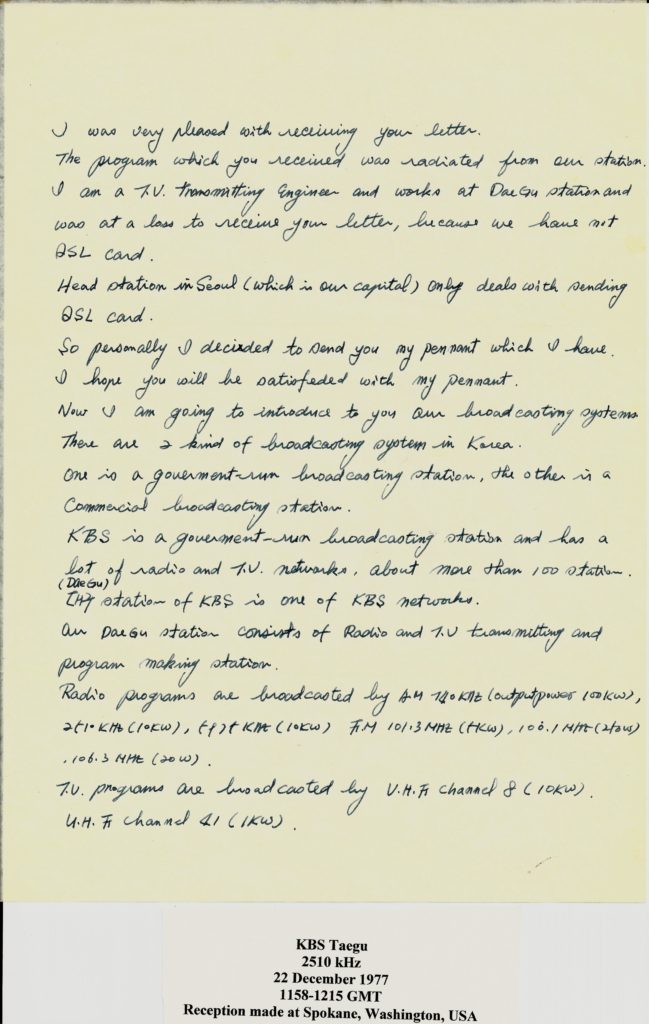 I was very pleased with receiving your letter.
The program which you received was radiated from our station.
I am a T.V. transmitting Engineer and works at DaeGu station and
was at a loss to receive your letter, because we have not
QSL card.
Head station in Seoul (which is our capital) only deals with sending
QSL card.
So personally I decided to send you my pennant which I have.
I hope you will be satisfeded with my pennant.
Now I am going to introduce to you our broadcasting systems
There are 2 kind of broadcasting system in Korea.
One is a goverment-run broadcasting station, the other is a
Commercial broadcasting station.
KBS is a goverment-run broadcasting station and has a
lot of radio and T.V. networks, about more than 100 station.
(DaeGu)
station of KBS is one of KBS networks.
Our DaeGu station consists of Radio and T.V transmitting and
program making station.
Radio programs are broadcasted by AM 740KHZ (outputpower 100KW),
2510 KHZ (10KW), KHZ (10KW) F.M 101.3 MHZ (5KW),
, 106.3 MHZ (20W).
T.V. programs are broadcasted by V.H.F channel 8 (10KW).
U.H.F channel 41 (1KW).
KBS Taegu
2510 kHz
22 December 1977
1158-1215 GMT
Reception made at Spokane, Washington, USA